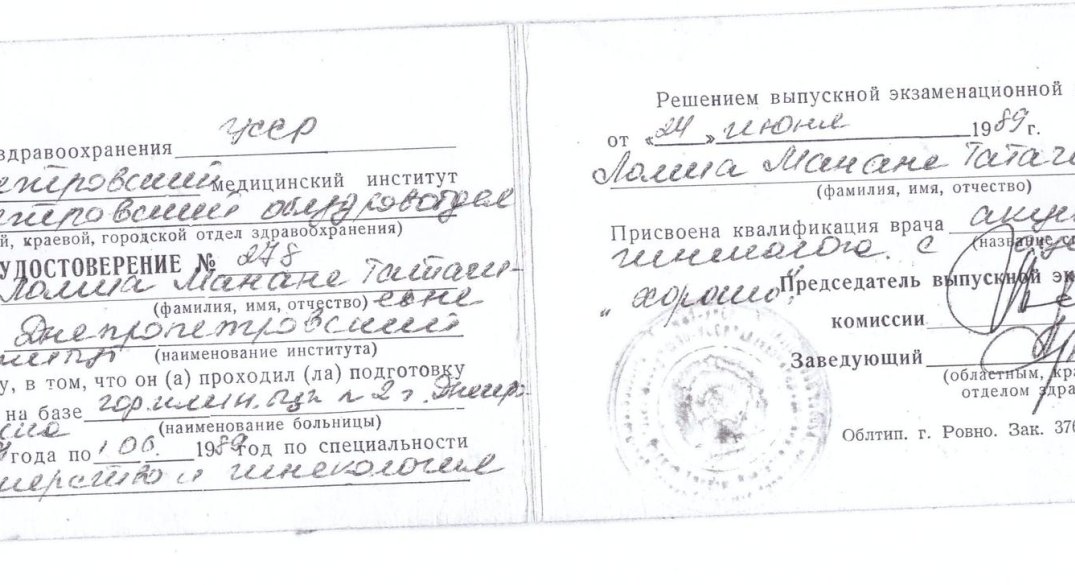 УССР
здравоохранения
медицинский институт
облздравотдел
й, краевой, городской отдел здравоохранения)
УДОСТОВЕРЕНИЕ № 278
Манане
(фамилия, имя, отчество)
Днепропетровский
(наименование института)
у, в том, что он (а) проходил (ла) подготовку
на базе гор. клин. б-цы № 2 г.
(наименование больницы)
года по 1 06. 1989 год по специальности
и гинекология
Решением выпускной экзаменационной
от «24» июня 1989 г.
Манане
(фамилия, имя, отчество)
Присвоена квалификация врача
гинеколога. с
"хорошо"
Председатель выпускной эк
комиссии
Заведующий
(областным, кра
отделом здра
Облтип. г. Ровно. Зак. 376